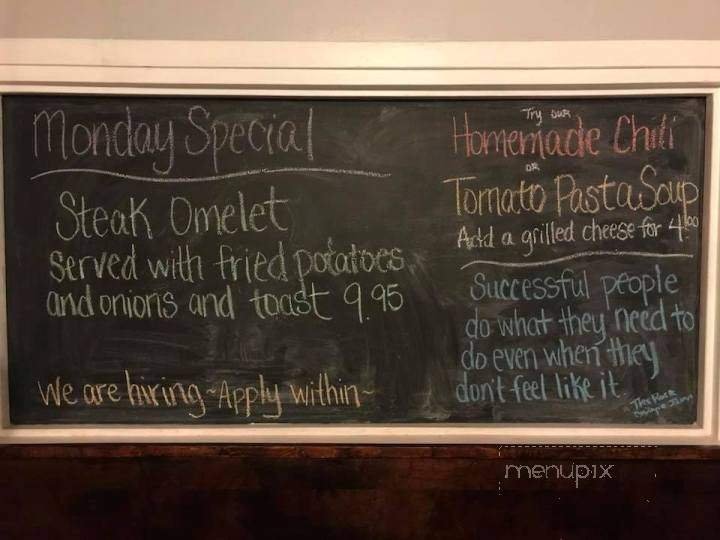 Monday Special
Steak Omelet
served with fried potatoes
and onions and toast 9.95
We are hiring ~ Apply within ~
Try our
Homemade Chili
OR
Tomato Pasta Soup
Add a grilled cheese for 4.00
Successful people
do what they need to
do even when they
don't feel like it
menupix